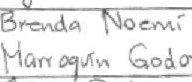 Brenda Noemí
Marroquín Godo